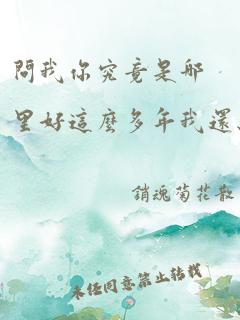 問我你究竟是哪
里好這麼多年我還
銷魂菊花散
未经同意禁止转载